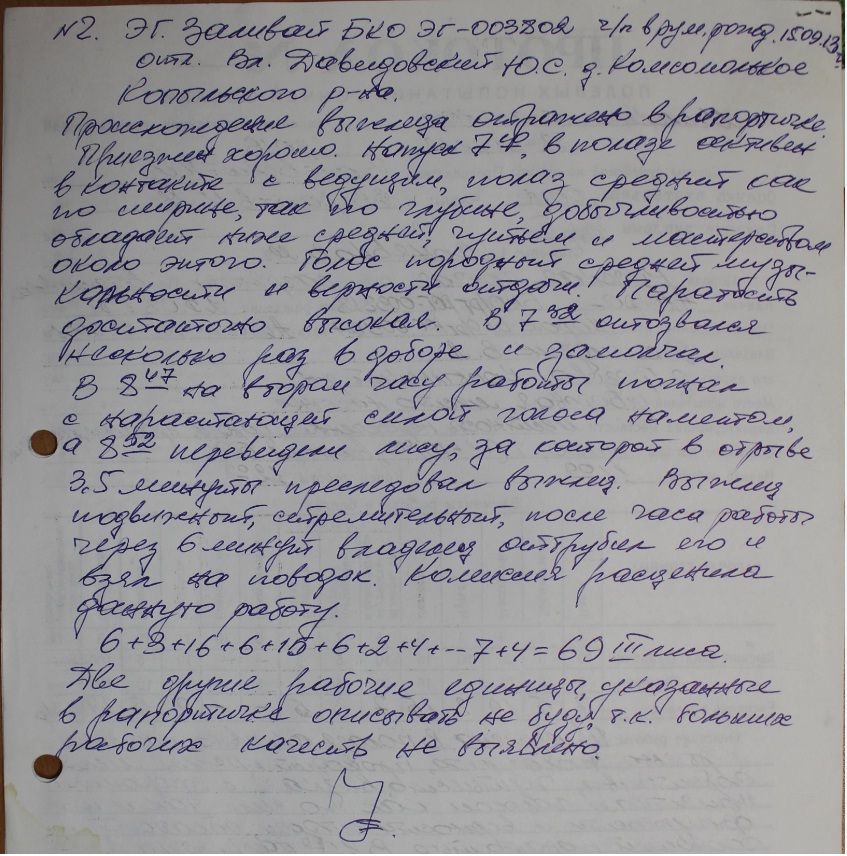 №2. ЭГ. Заливай БКО ЭГ-003802 ч/п в рум. рожд. 15.09.13г.
отл. Вл. Давидовский Ю.С. д. Комсомольское
Копыльского р-на.
Происхождение выжлеца отражено в рапортичке.
Приезжен хорошо. Напуск 7 40, в полазе активен
в контакте с ведущим, полаз средний как
по ширине, так по глубине, добычливостью
обладает ниже средней, чутьем и мастерством
около этого. Голос породный средней музы-
кальности и верности отдачи. Паратость
достаточно высокая. В 7 32 отозвался
несколько раз в доборе и замолчал.
В 8 47 на втором часу работы погнал
с нарастающей силой голоса
а 8 52 перевидели лису, за которой в отрыве
3,5 минуты преследовал выжлец. Выжлец
подвижный, стремительный, после часа работы
через 6 минут владелец оттрубил его и
взял на поводок. Комиссия расценила
данную работу.
6+3+16+6+15+6+2+4+--7+4=69 III лиса.
Две другие рабочие единицы, указанные
в рапортичке описывать не буду, т.к. больших
рабочих качеств не выявлено.